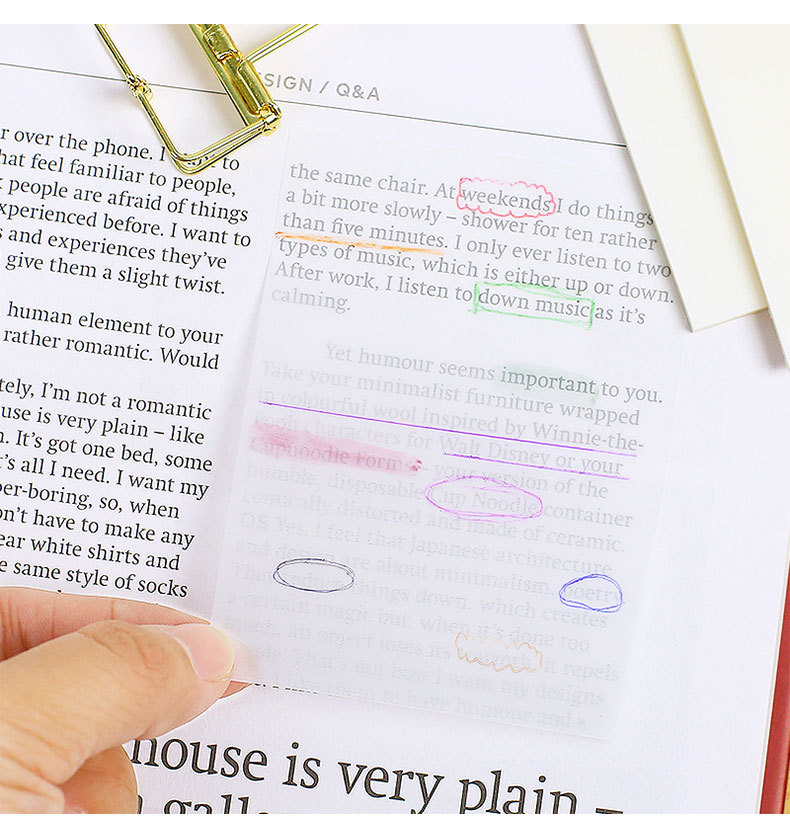 SIGN / Q&A
r over the phone. I to
hat feel familiar to people,
people are afraid of things
xperienced before. I want to
s and experiences they've
give them a slight twist.
human element to your
rather romantic. Would
tely, I'm not a romantic
use is very plain – like
n. It's got one bed, some
's all I need. I want my
er-boring, so, when
n't have to make any
ear white shirts and
e same style of socks
the same chair. At weekends I do things
a bit more slowly – shower for ten rather
than five minutes. I only ever listen to two
types of music, which is either up or down.
After work, I listen to down music as it's
calming.
Yet humour seems important to you.
Take your minimalist furniture wrapped
in colourful wool inspired by Winnie-the-
Pooh characters for Walt Disney or your
Cupnoodle Forms – your version of the
humble, disposable Cup Noodle container
comically distorted and made of ceramic.
OS Yes. I feel that Japanese architecture
and design are about minimalism, poetry
They reduce things down, which creates
a certain magic but, when it's done too
much, an object loses its warmth. It repels
people. That's not how I want my designs
like them to have humour and
house is very plain –